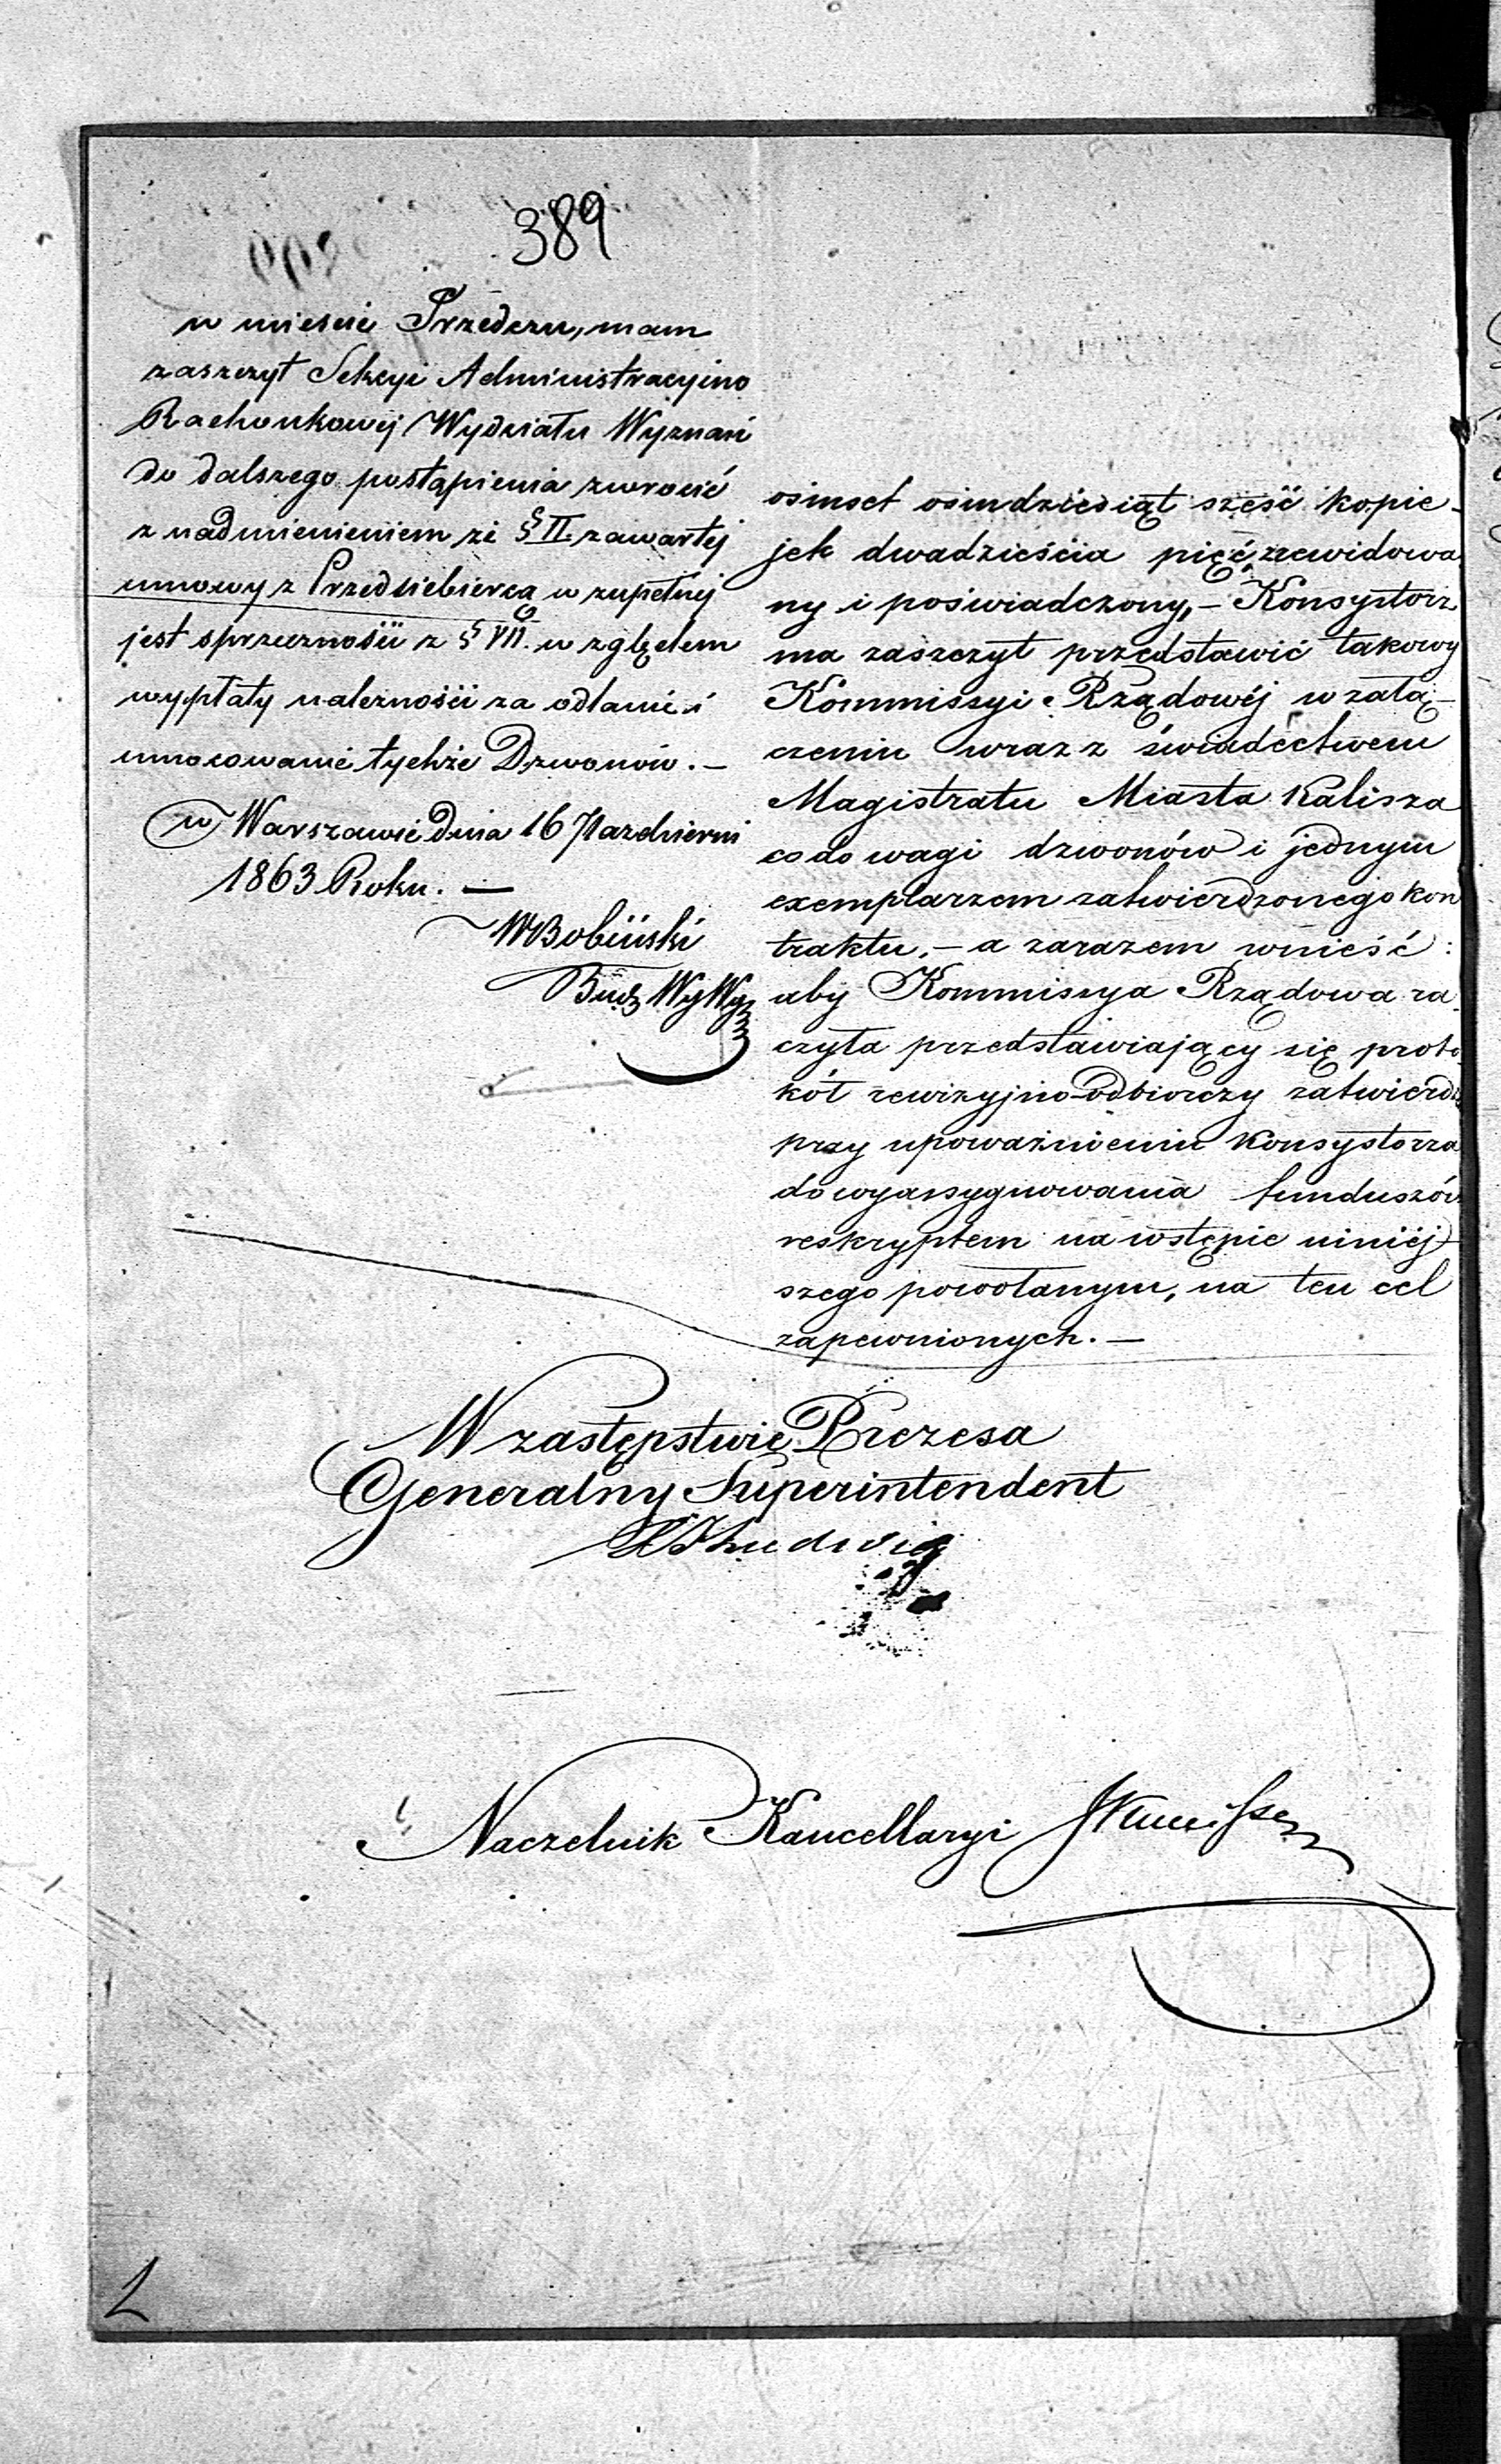 389
w mieście Przedczu, mam
zaszczyt Sekcyi Administracyino
Rachunkowej Wydziału Wyznań
do dalszego postąpienia zwrócić
z nadmienieniem że § II. zawartej
umowy z Przedsiebiercą w zupełnej
jest sprzeczności z § VII. względem
wypłaty należności za odlanie i
umocowanie tychże Dzwonów. —
w Warszawie Dnia 16 Pazdierni
1863 Roku. —
WBobiński
Bud: Wy Wyz
osimset osimdziesiąt sześć kopie-
jek dwadzieścia pięć, zrewidowa
ny i poświadczony, — Konsystorz
ma zaszczyt przedstawić takowy
Kommissyi Rządowéj w załą-
czeniu wraz z świadectwem
Magistratu Miasta Kalisza
co do wagi dzwonów i jednym
exemplarzem zatwierdzonego kon
traktu, — a zarazem wnieść:
aby Kommissya Rządowa ra-
czyła przedstawiający się proto-
kół rewizyjno-odbiorczy zatwierdz
przy upoważnieniu Konsystorza
do wyassygnowania funduszów
reskryptem na wstępie niniéj-
szego powołanym, na ten cel
zapewnionych. —
W zastępstwie Prezesa
Generalny Superintendent
Ludwig
Naczelnik Kancellaryi